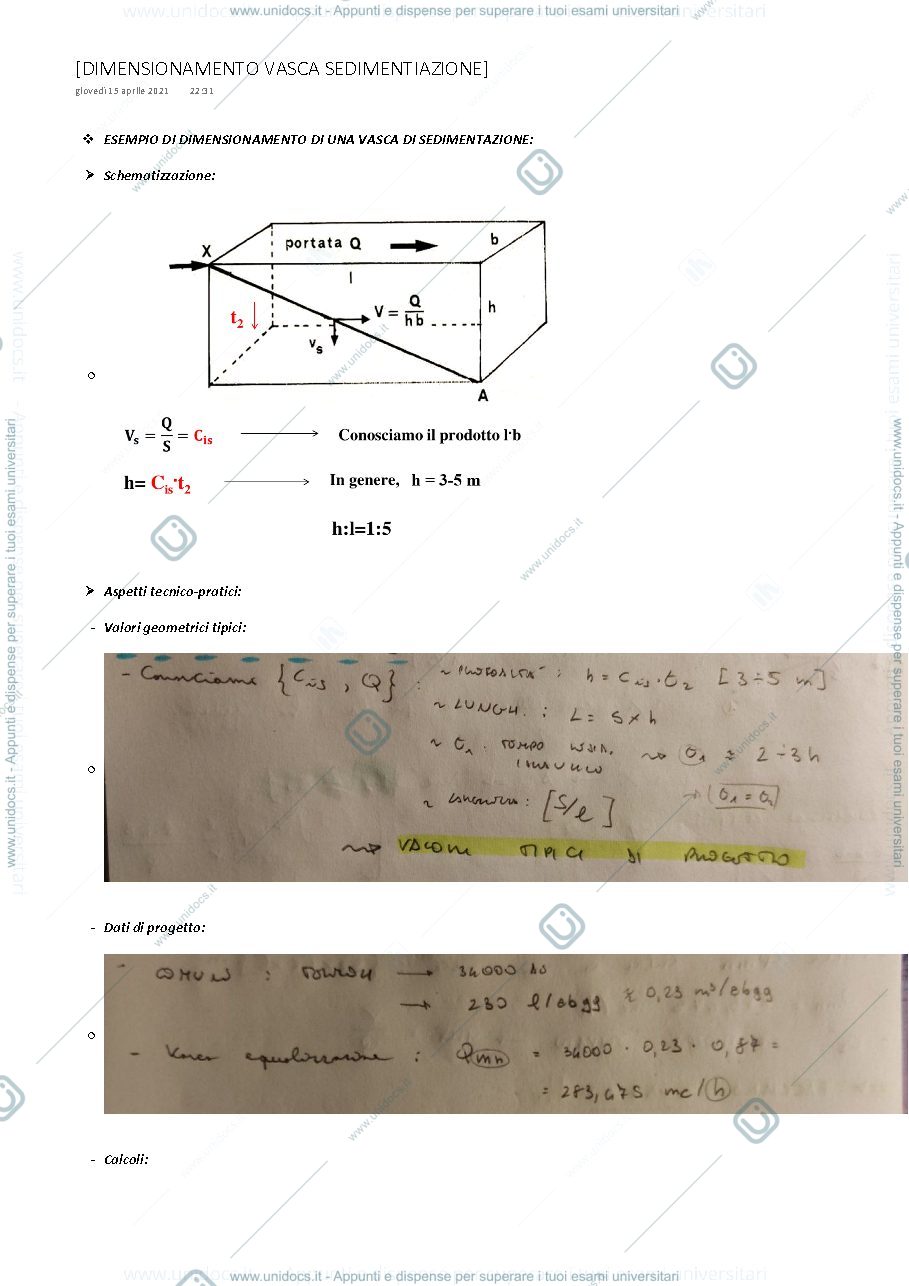 www.unidocs.it - Appunti e dispense per superare i tuoi esami universitari
[DIMENSIONAMENTO VASCA SEDIMENTIAZIONE]
giovedì 15 aprile 2021 22:31
❖ ESEMPIO DI DIMENSIONAMENTO DI UNA VASCA DI SEDIMENTAZIONE:
➢ Schematizzazione:
portata Q
b
X
l
t2
V = Q / hb
h
vs
A
Vs = Q/S = Cis
Conosciamo il prodotto l·b
h= Cis·t2
In genere, h = 3-5 m
h:l=1:5
➢ Aspetti tecnico-pratici:
- Valori geometrici tipici:
- Conosciamo {Cis, Q} : ~ PROFONDITÀ : h = Cis · t2 [3÷5 m]
~ LUNGH. : L = 5 x h
~ t1 . TEMPO t1 ≈ 2÷3h
~ : [S/l] → (t1 = t2)
VALORI TIPICI DI PROGETTO
- Dati di progetto:
COMUNE : → 34000 ab
→ 230 l/abgg ≈ 0,23 m³/abgg
- Vasca equalizzazione : Qmn = 34000 · 0,23 · 0,87 =
= 283,475 mc/h
- Calcoli:
www.unidocs.it - Appunti e dispense per superare i tuoi esami universitari